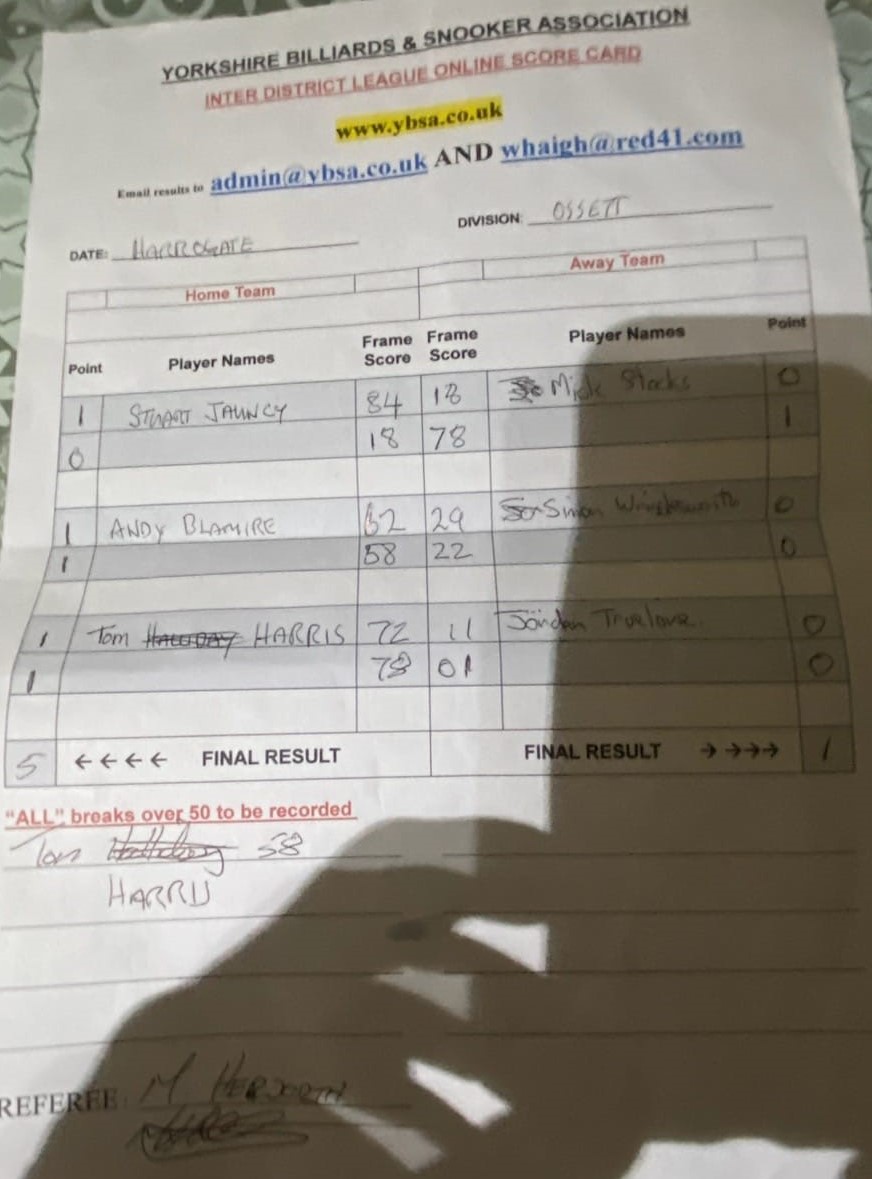 YORKSHIRE BILLIARDS & SNOOKER ASSOCIATION
INTER DISTRICT LEAGUE ONLINE SCORE CARD
www.ybsa.co.uk
Email results to admin@ybsa.co.uk AND whaigh@red41.com
DATE: HARROGATE DIVISION: OSSETT
Home Team Away Team
Point Player Names Frame Score Frame Score Player Names Point
1 STUART JAUNCY 84 18 Mick Stocks 0
0 18 78 1
1 ANDY BLAMIRE 62 29 Simon 0
1 58 22 0
1 Tom HARRIS 72 11 Jordan Truelove 0
1 78 01 0
5 ←←←← FINAL RESULT FINAL RESULT →→→→ 1
"ALL" breaks over 50 to be recorded
Tom 58
HARRIS
REFEREE M